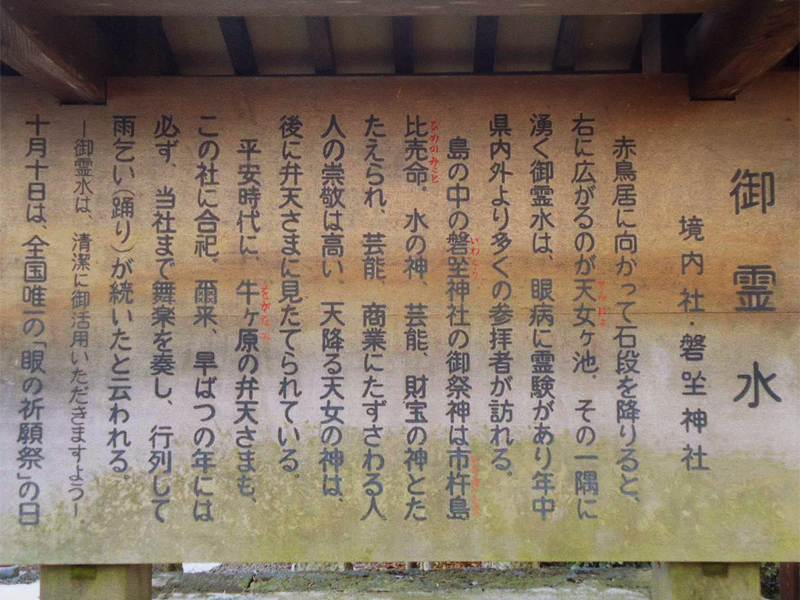 御霊水
境内社・磐㘴神社
赤鳥居に向かって石段を降りると、
てんにょ
右に広がるのが天女ヶ池。その一隅に
湧く御霊水は、眼病に霊験があり年中
県内外より多くの参拝者が訪れる。
いわくら
島の中の磐㘴神社の御祭神は市杵島
ひめのみこと
比売命。水の神、芸能、財宝の神とた
たえられ、芸能、商業にたずさわる人
人の崇敬は高い、天降る天女の神は、
後に弁天さまに見たてられている。
平安時代に、牛ヶ原の弁天さまも、
この社に合祀、爾来、旱ばつの年には
必ず、当社まで舞楽を奏し、行列して
雨乞い(踊り)が続いたと云われる。
―御霊水は、清潔に御活用いただきますよう―
十月十日は、全国唯一の「眼の祈願祭」の日